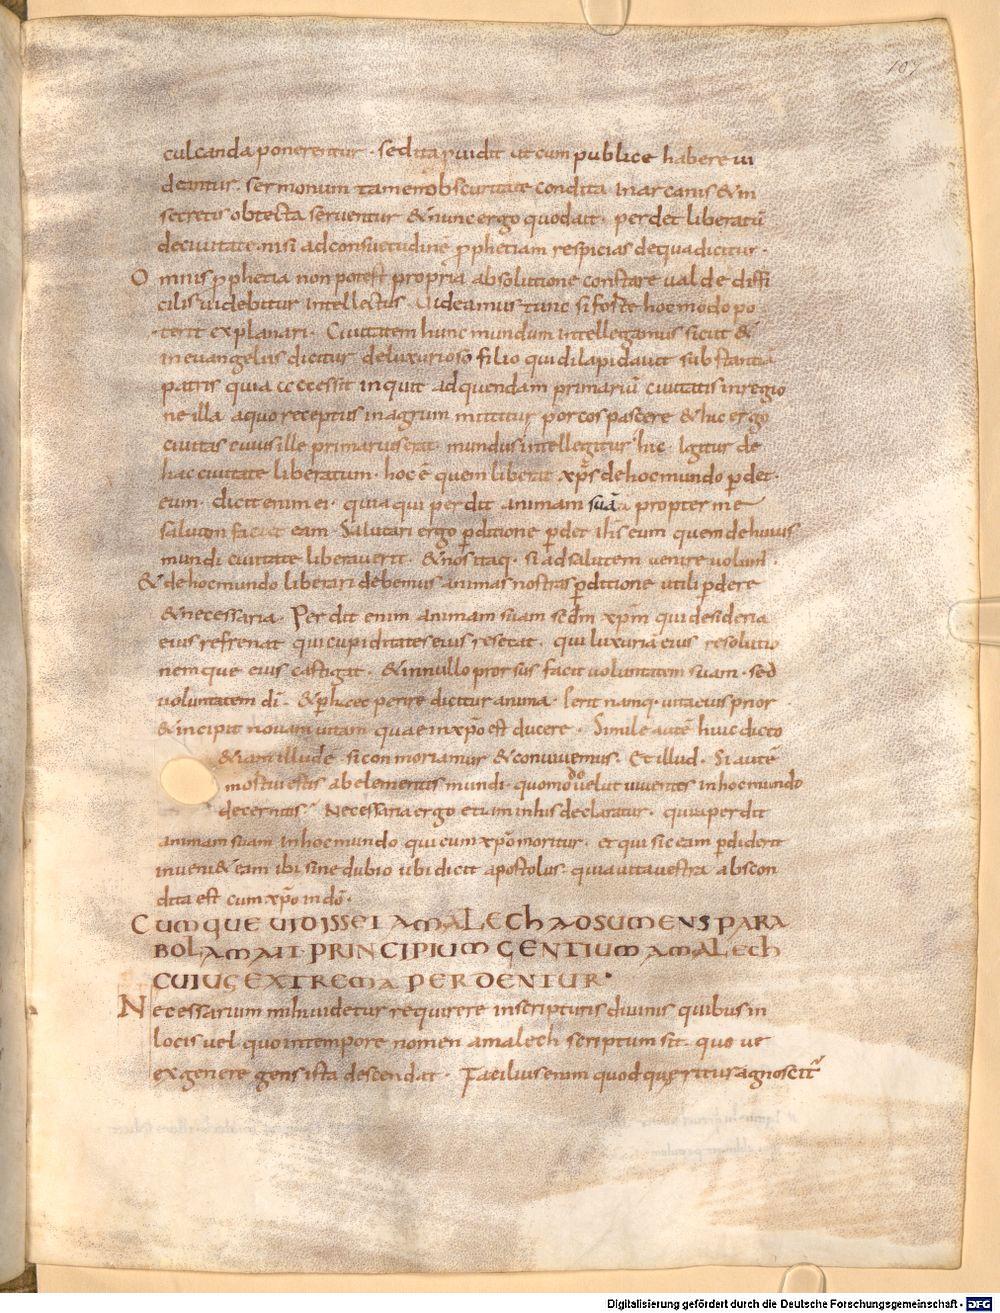 107
culcanda ponerentur · sed ita puidit ut cum publice habere ui
deantur · sermonum tamen obscuritate condita in arcanis & in
secretis obtecta seruentur & nunc ergo quod ait · perdet liberatū
de ciuitate · nisi ad consuetudinē prophetiam respicias de qua dicitur ·
Omnis prophetia non potest propria absolutione constare ualde diffi
cilis uidebitur intellectus · Uideamus tunc si forte hoc modo po
terit explanari · Ciuitatem hunc mundum intellegamus sicut &
in euangeliis dicitur de luxurioso filio qui dilapidauit substantiā
patris quia accessit inquit ad quendam primariū ciuitatis in regio
ne illa a quo receptus in agrum mittitur porcos pascere & hic ergo
ciuitas cuius ille primarius erat · mundus intellegitur hic · Igitur de
hac ciuitate liberatum · hoc ē quem liberat xp̄s de hoc mundo p̱det ·
eum · dicit enim ei · quia qui perdit animam suā propter me
saluam faciet eam · Salutari ergo p̱ditione p̱det ih̄s eum quem de huius
mundi ciuitate liberauerit · & nos itaq· si ad salutem uenire uolum̄ ·
& de hoc mundo liberari debemus animas nostras p̱ditione utili p̱dere
& necessaria · Perdit enim animam suam sedm̄ xp̄m qui desideria
eius refrenat qui cupiditates eius resecat · qui luxuriā eius resolutio
nemque eius castigat · & in nullo prorsus facit uoluntatem suam · sed
uoluntatem dī · & p̱ haec perire dicitur anima · Perit namq· uita eius prior
& incipit nouam uitam quae in xp̄o est ducere · Simile autē huic dicto
& iam illud ē · si conmoriamur & conuiuemus · Et illud · Si autē
mortui estis ab elementis mundi · quomodo uelut uiuentes in hoc mundo
decernitis · Necessaria ergo etiam in his declaratur · quia perdit
animam suam in hoc mundo qui cum xp̄o moritur · et qui sic eam p̱diderit
inueni& eam ibi sine dubio ubi dicit apostolus · quia uita uestra abscon
dita est cum xp̄o in dō ·
CUMQUE UIDISSET AMALECH ADSUMENS PARA
BOLAM AIT · PRINCIPIUM GENTIUM AMALECH
CUIUS EXTREMA PERDENTUR ·
Necessarium mihi uidetur requirere in scripturis diuinis quibus in
locis uel quo in tempore nomen amalech scriptum sit · quo ue
ex genere gens ista descendat · Facilius enim quod quęritur agnoscit̃
Digitalisierung gefördert durch die Deutsche Forschungsgemeinschaft - DFG